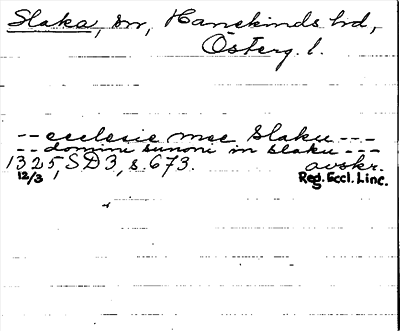 Slaka, sn, Hanekinds hd,
Österg. l.
-- ecclesie mee Slaku ---
-- domini sunoni in slaku ---
1325, SD3, s. 673. avskr.
12/3 Reg. Eccl. Linc.